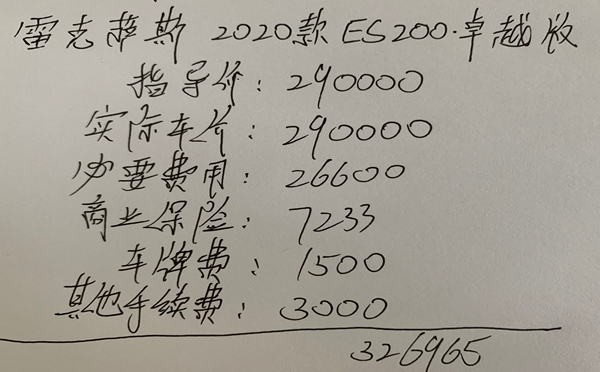 雷克萨斯 2020款 ES200·卓越版
指导价：290000
实际车价：290000
必要费用：26600
商业保险：7233
车牌费：1500
其他手续费：3000
326965